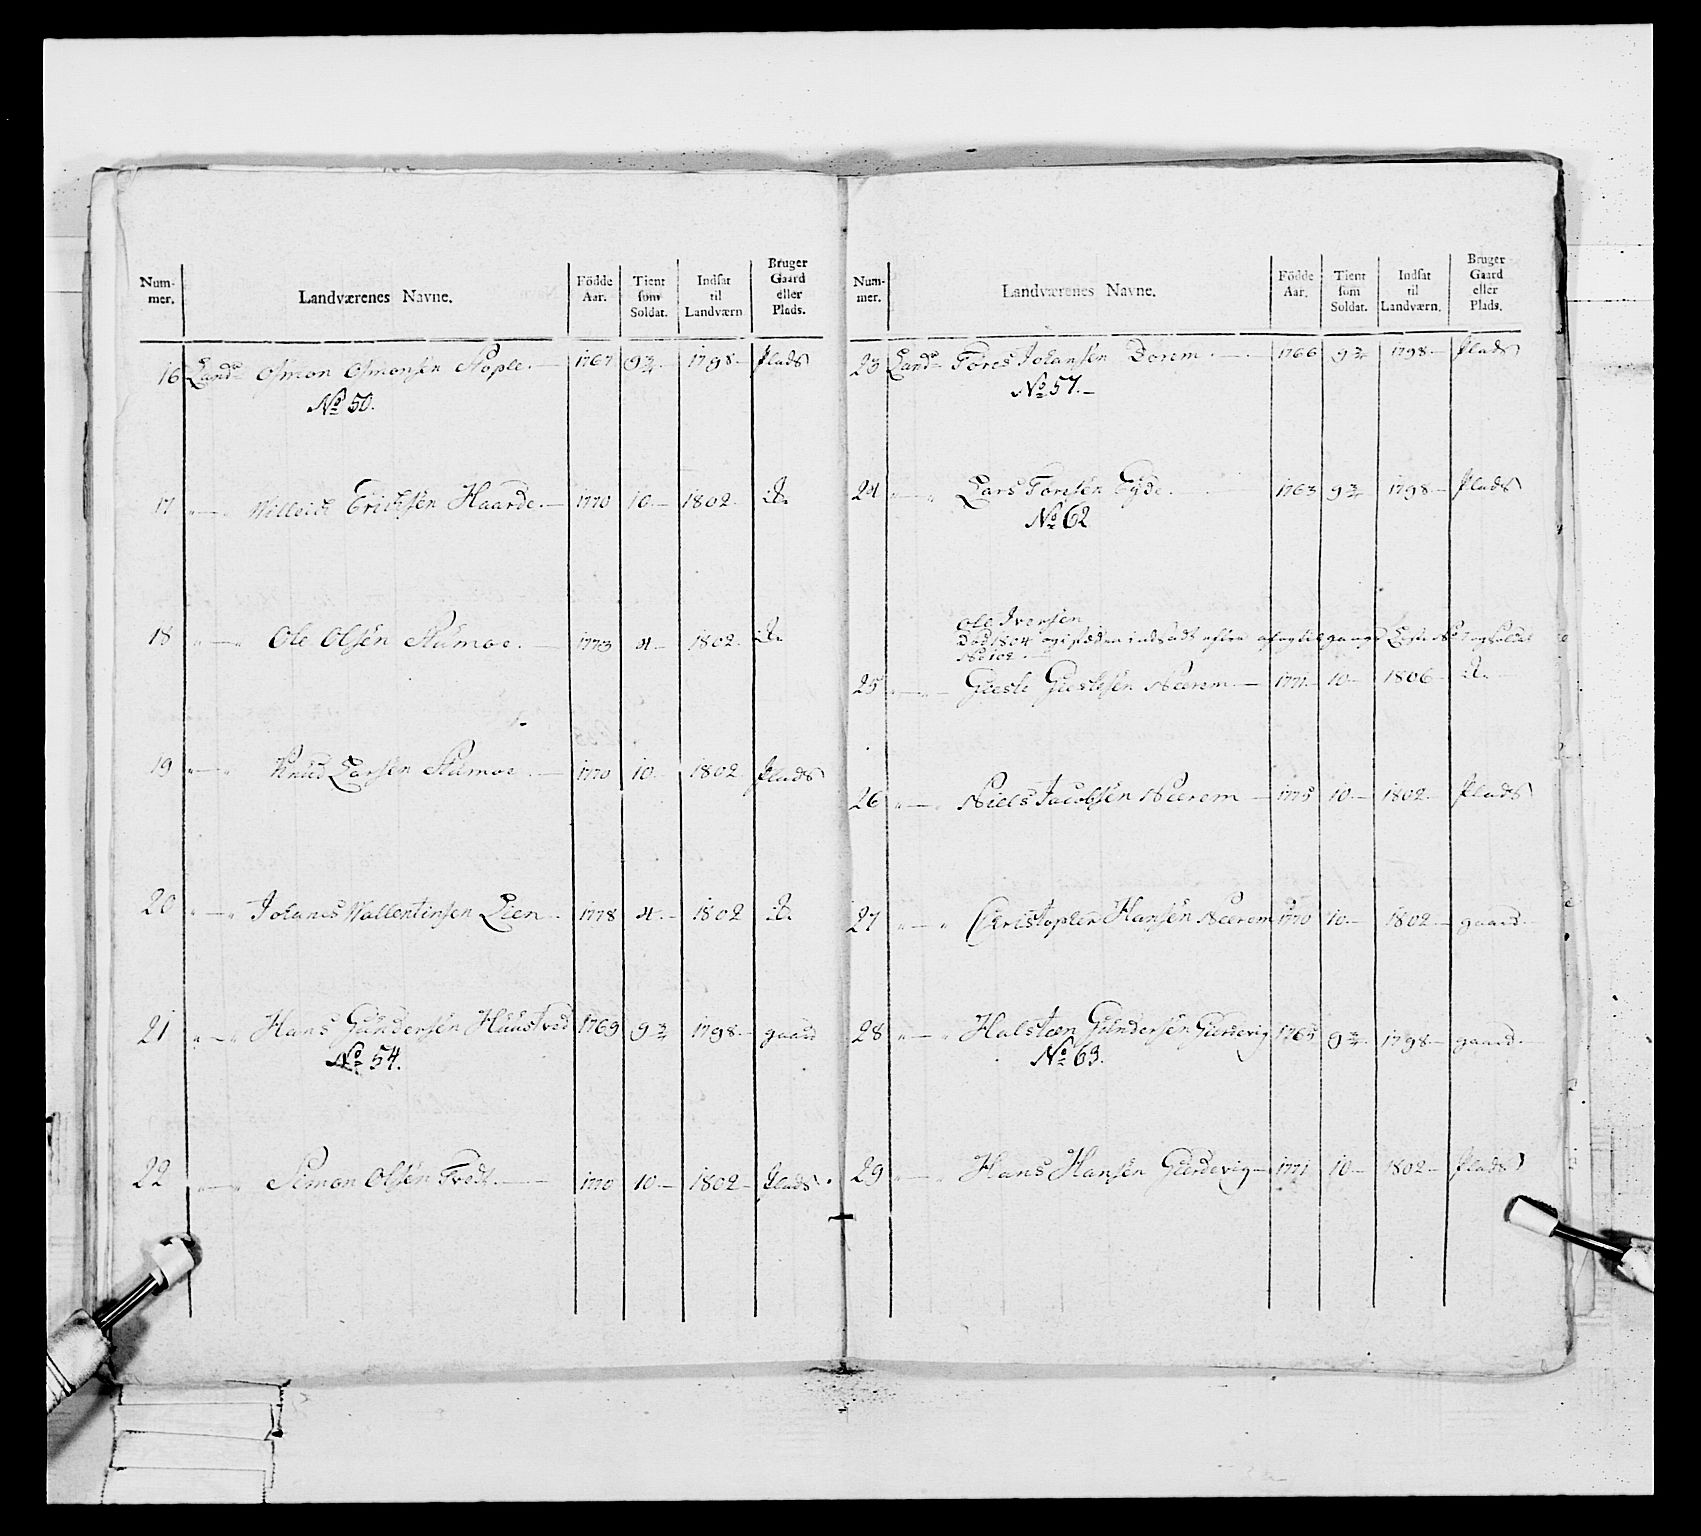 Num-
mer.
Landværenes Navne.
Födde
Aar.
Tient
som
Soldat.
Indsat
til
Landværn
Bruger
Gaard
eller
Plads.
16 Land Osmon Osmonsen Stople. 1767 9¾ 1798 Plads
No 50.
17 " — " Erichsen Haarde. 1770 10 1802 Do
18 " — " Ole Olsen Stumoe. 1773 4 1802 Do
19 " — " Knud Larsen Stumoe. 1770 10 1802 Plads
20 " — " Johanes Wallentinsen Lien 1778 4 1802 Do
21 " — " Hans Gundersen Huustved 1769 9¾ 1798 gaard
No 54.
22 " — " Simon Olsen Tvedt. 1770 10 1802 Plads
Num-
mer.
Landværenes Navne.
Födde
Aar.
Tient
som
Soldat.
Indsat
til
Landværn.
Bruger
Gaard
eller
Plads.
23 Land Tores Johansen Dorem 1766 9¾ 1798 Plads
No 57.
24 " — " Lars Toresen Eyde. 1763 9¾ 1798 Plads
No 62
Ole Iversen
Död 1804 og i steden indsadt efter afgang
No 102.
25 " — " Giestsen Neerem 1771 10 1806 Do
26 " — " Niels Jacobsen Neerem 1775 10 1802 Plads
27 " — " Christopher Hansen Neerem 1770 10 1802 gaard
28 " — " Halsteen Gundersen Gierdevig 1765 9¾ 1798 gaard
No 63.
29 " — " Hans Hansen Gierdevig 1771 10 1802 Plads